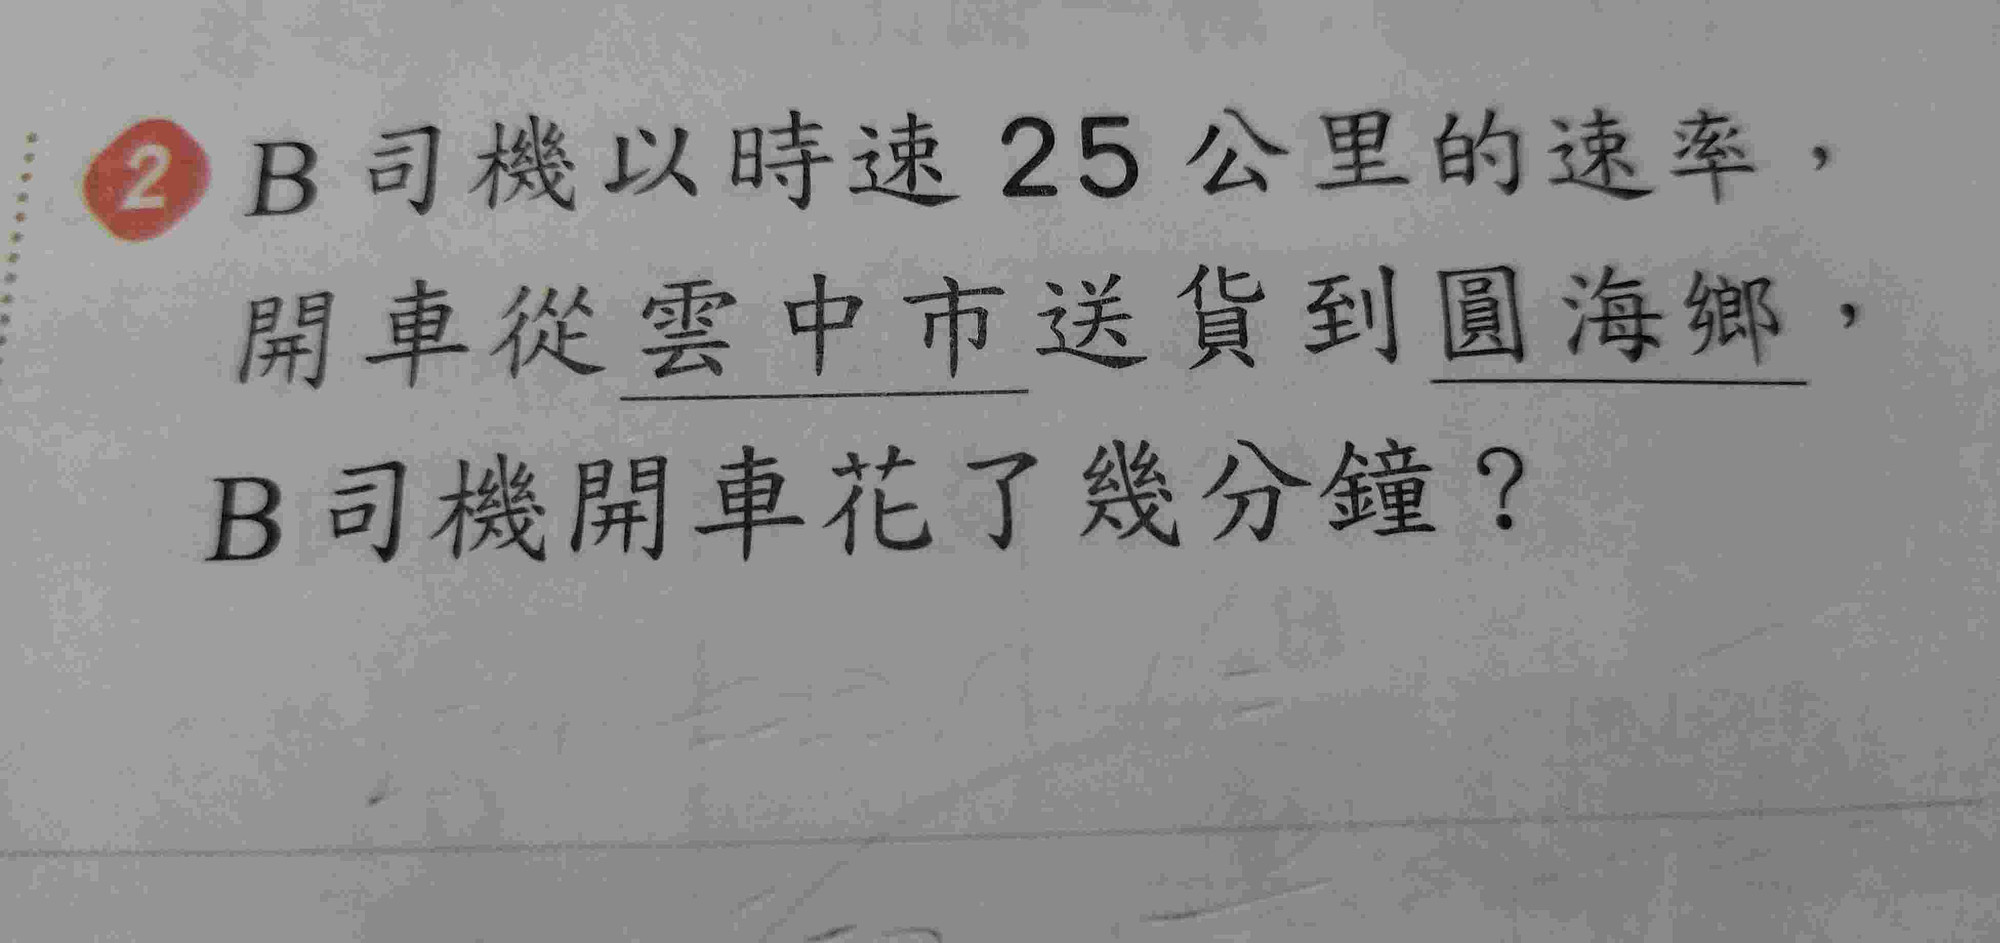 2 B司機以時速25公里的速率，
開車從雲中市送貨到圓海鄉，
B司機開車花了幾分鐘？